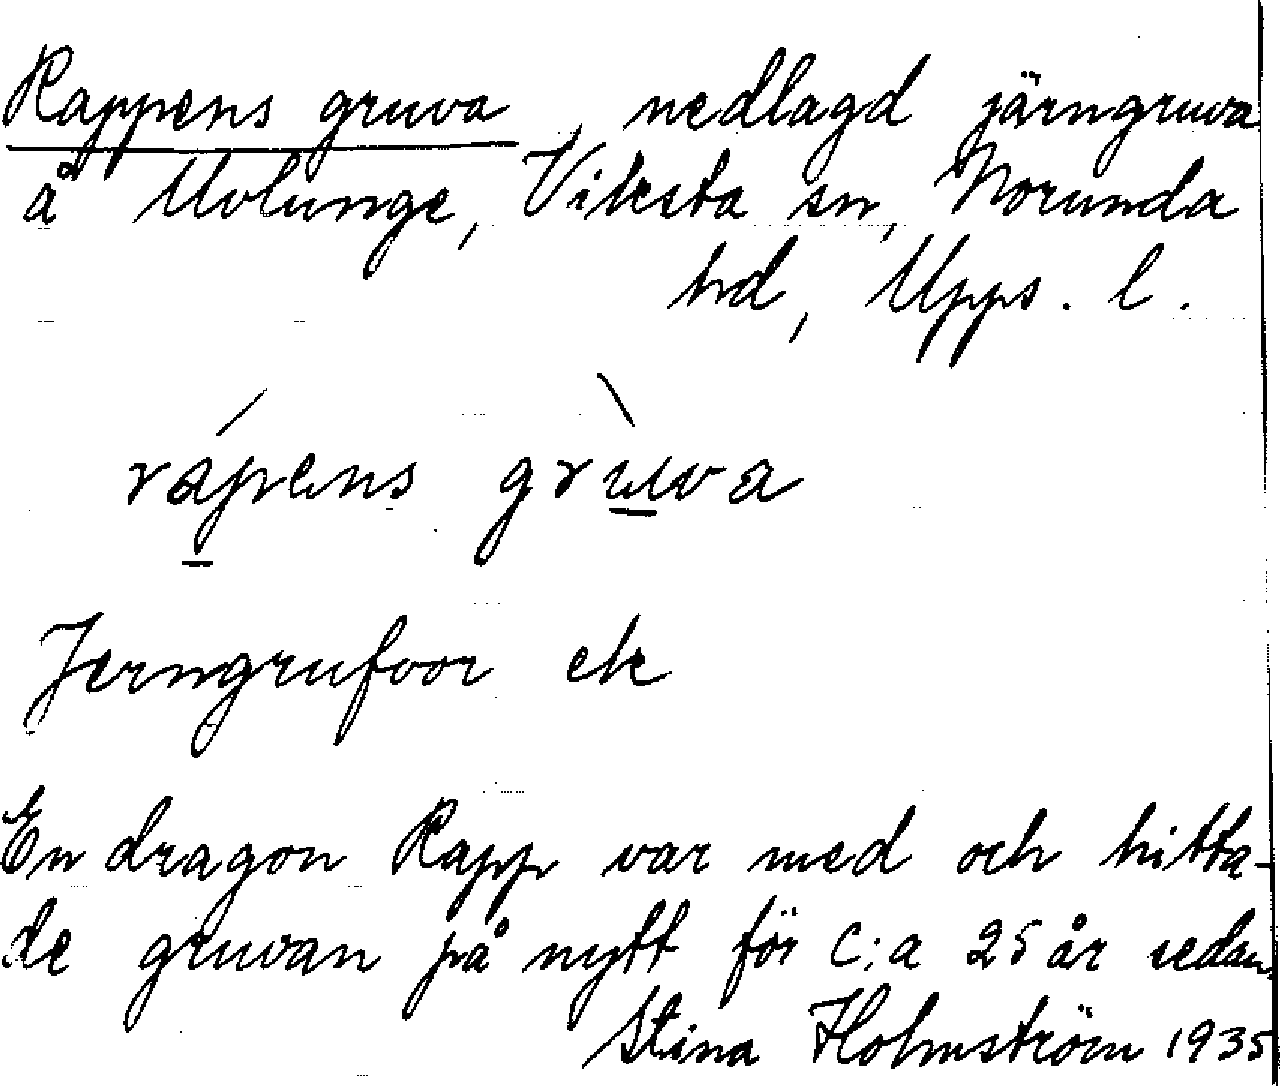 Rappens gruva, nedlagd järngruva
å Uvlunge, Viksta sn, Norunda
hd, Upps. l.
rápens grùva
Jerngrufvor ek
En dragon Rapp var med och hitta-
de gruvan på nytt för c:a 25 år sedan
Stina Holmström 1935